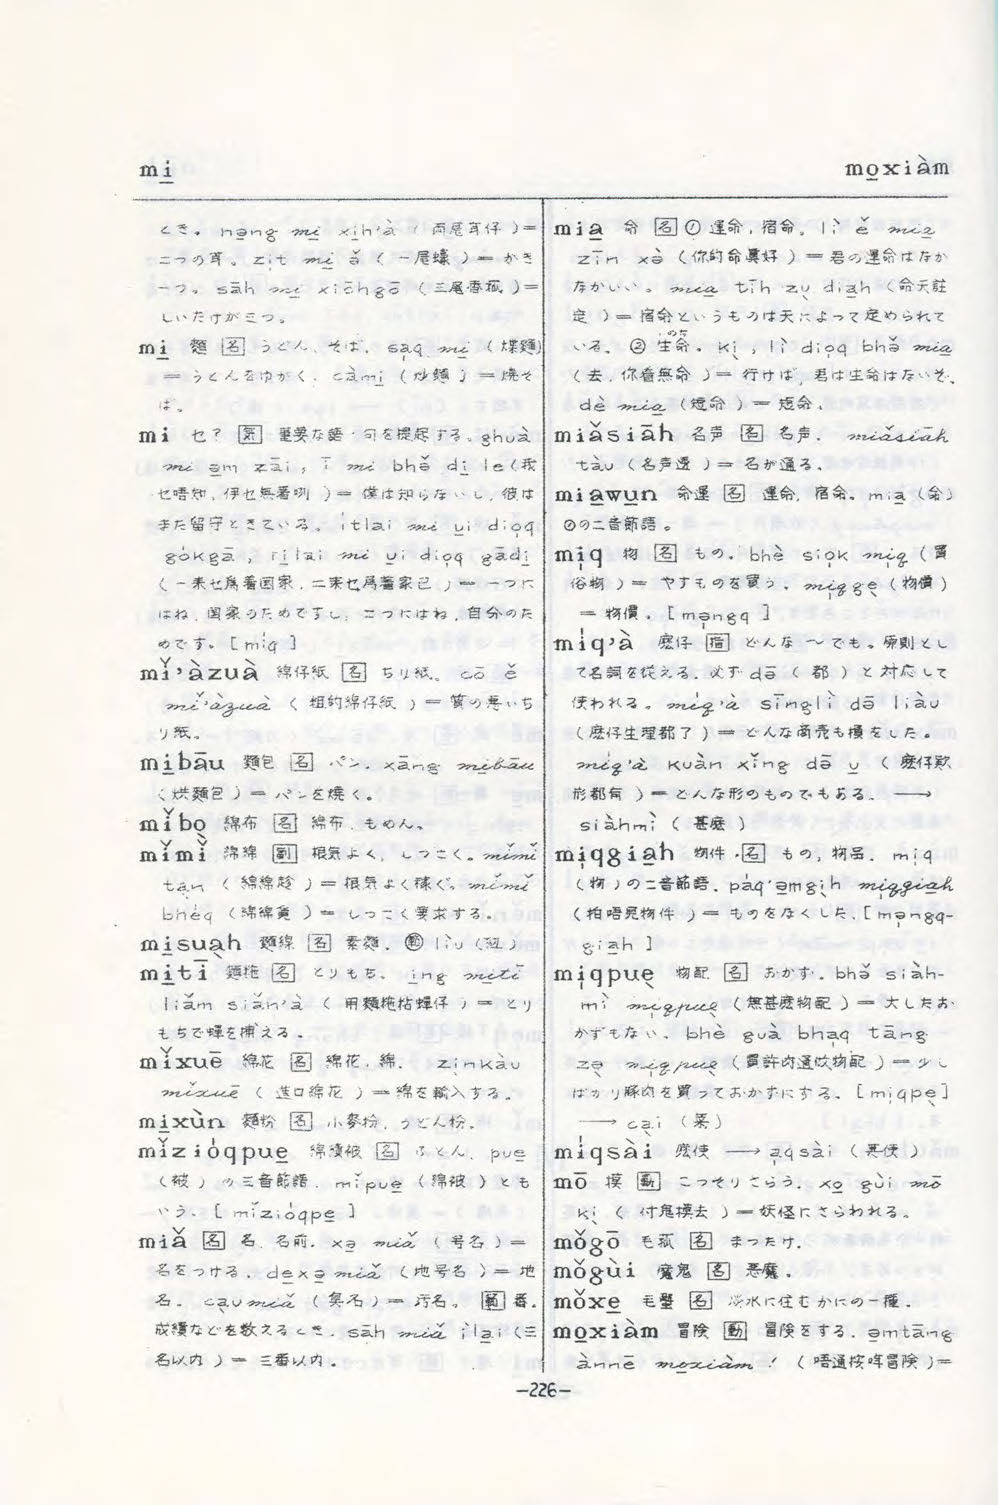 mi̱
mo̱xiàm
とき。nəng mi̱ xi̱h'à (両尾耳仔)=
二つの耳。zi̱t mi̱ ǒ (一尾蠔)=かき
一つ。sāh mi̱ xiōhgō (三尾香菰)=
しいたけが三つ。
mi̱ 麵 [名] うどん,そば。sa̱q mi̱ (煠麵)
=うどんをゆがく。cà mi̱ (炒麵)=焼そ
ば。
mi 乜? [気] 重要な語・句を提起する。ghuà
mi əm zāi, ī mi bhě di̱ le (我
乜唔知,伊乜無着咧)=僕は知らないし,彼は
また留守ときている。i̍tlai mi ui̱ dio̱q
go̍kgā, ri̱lai mi ui̱ dio̱q gādi̱
(一来乜為着国家,二来乜為着家己)=一つに
はね,国家のためですし,二つにはね,自分のた
めです。[mi̍q]
mǐ'àzuà 綿仔紙 [名] ちり紙。cō ě
mǐ'àzuà (粗的綿仔紙)=質の悪いち
り紙。
mi̱bāu 麵包 [名] パン。xāng mi̱bāu
(烘麵包)=パンを焼く。
mǐbo̱ 綿布 [名] 綿布,もめん。
mǐmǐ 綿綿 [副] 根気よく,しつこく。mǐmǐ
ta̱n (綿綿趁)=根気よく稼ぐ。mǐmǐ
bhe̍q (綿綿覓)=しつこく要求する。
mi̱sua̱h 麵線 [名] 素麵。(数) liu (紐)
mi̱tī 麵𥻵 [名] とりもち。i̱ng mi̱tī
liǎm siǎn'à (用麵黐拈蟬仔)=とり
もちで蟬を捕える。
mǐxuē 綿花 [名] 綿花,綿。zi̱nkàu
mǐxuē (進口綿花)=綿を輸入する。
mi̱xùn 麵粉 [名] 小麥粉,うどん粉。
mǐzio̍qpue̱ 綿績被 [名] ふとん。pue̱
(被)の三音節語。mǐpue̱ (綿被)とも
いう。[mǐzio̍qpe̱]
miǎ [名] 名,名前。xə̱ miǎ (号名)=
名をつける。de̱xə̱ miǎ (地号名)=地
名。ca̱u miǎ (臭名)=汚名。[数] 番。
成績などを数えるとき。sāh miǎ i̍lai (三
名以内)=三番以内。
mia̱ 命 [名] ①運命,宿命。lì ě mia̱
zīn xə̀ (你的命真好)=君の運命はなか
なかいい。mia̱ tīh zu̱ dia̱h (命天註
定)=宿命というものは天によって定められて
いる。②生命。ki̱, lì dio̱q bhə̌ mia̱
(去,你着無命)=行けば,君は生命はないぞ。
dè mia̱ (短命)=短命。
miǎsiāh 名声 [名] 名声。miǎsiāh
tàu (名声透)=名が通る。
mia̱wun 命運 [名] 運命,宿命。mia̱ (命)
①の二音節語。
mi̍q 物 [名] もの。bhè sio̍k mi̍q (買
俗物)=やすものを買う。mi̍qge̱ (物価)
=物価。[mə̍ngq]
mi̍q'à 麽仔 [指] どんな〜でも。原則とし
て名詞を従える。必ず dō (都)と対応して
使われる。mi̍q'à sīnglì dō liàu
(麽仔生理都了)=どんな商売も損をした。
mi̍q'à kuàn xǐng dō u̱ (麽仔款
形都有)=どんな形のものでもある。⟶
siàhmì (甚麽)
mi̍qgia̱h 物件 [名] もの,物品。mi̍q
(物)の二音節語。pàq'əmgi̱h mi̍qgia̱h
(拍唔見物件)=ものをなくした。[mə̍ngq-
gia̱h]
mi̍qpue̱ 物配 [名] おかず。bhə̌ siàh-
mì mi̍qpue̱ (無甚麽物配)=大したお
かずもない。bhè guà bha̱q tāng
zə̱ mi̍qpue̱ (買許肉通做物配)=少し
ばかり豚肉を買っておかずにする。[mi̍qpe̱]
⟶ ca̱i (菜)
mi̍qsài 麽使 ⟶ a̱qsài (甚使)
mō 摸 [動] こっそりさらう。xə̱ gùi mō
ki̱ (付鬼摸去)=妖怪にさらわれる。
mǒgō 毛菰 [名] まつたけ。
mǒgùi 魔鬼 [名] 悪魔。
mǒxe̱ 毛蟹 [名] 淡水に住むかにの一種。
mo̱xiàm 冒険 [動] 冒険をする。əmtāng
ànnē mo̱xiàm! (唔通按哖冒険)=
—226—